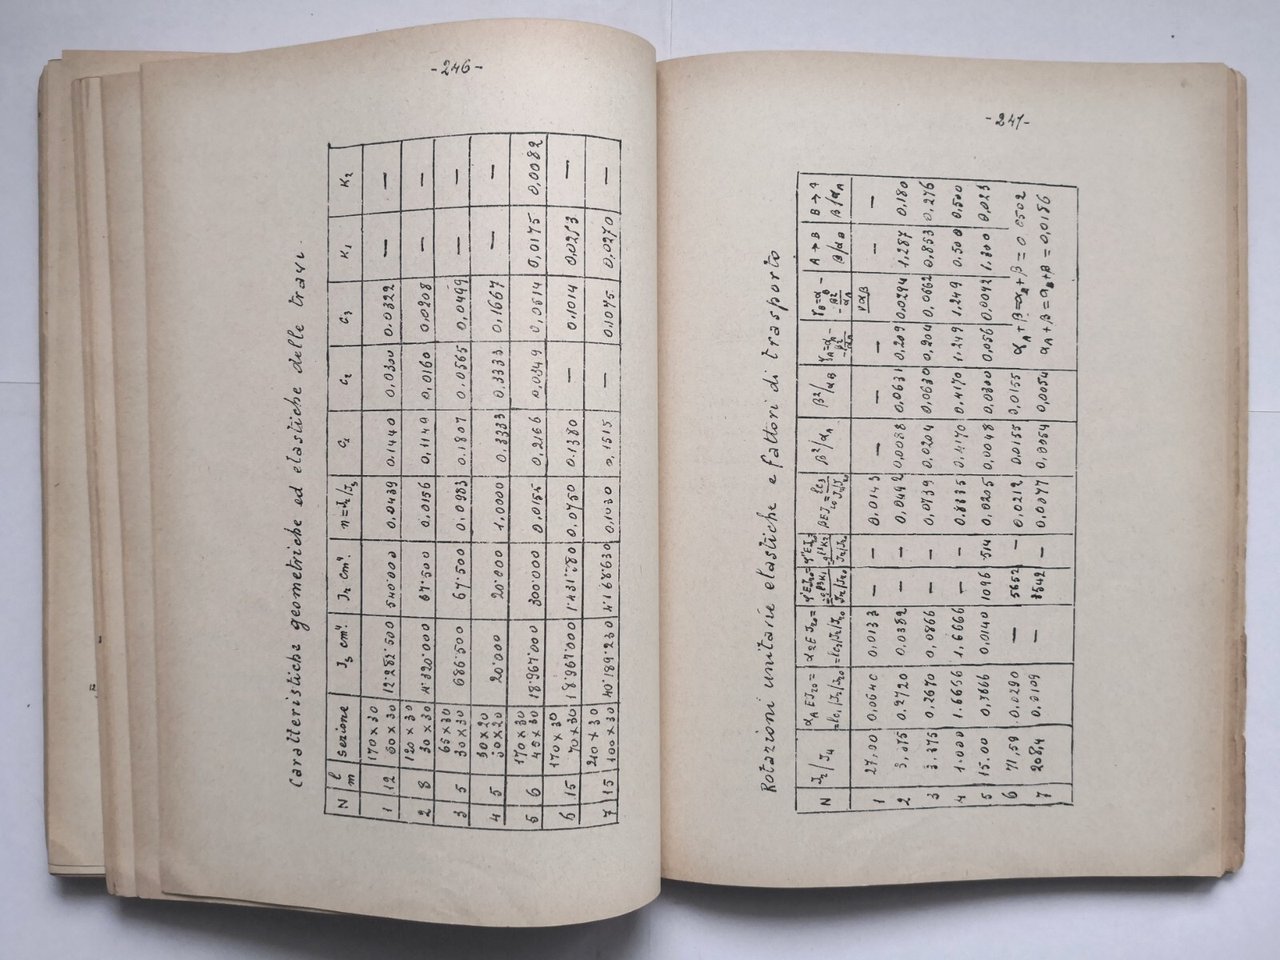 -246-
Caratteristiche geometriche ed elastiche delle travi.
N l m sezione J₃ cm⁴ J₂ cm⁴ n=J₂/J₃ c₁ c₂ c₃ K₁ K₂
1 12 170 x 30 60 x 30 12·282·500 540·000 0.0439 0.1440 0,0300 0.0322 — —
2 8 120 x 30 30 x 30 4·320·000 67·500 0,0156 0,1140 0,0160 0,0208 — —
3 5 65 x 30 30 x 30 686·500 67·500 0.0983 0.1807 0.0565 0,0499 — —
4 5 30 x 20 30 x 20 20·000 20·000 1.0000 0,3333 0.3333 0,1667 — —
5 6 170 x 30 45 x 30 18·967·000 300·000 0,0155 0,2166 0,0349 0,0514 0,0175 0,0082
6 15 170 x 30 70 x 30 18·967·000 0,0750 0.1380 — 0,1014 0,0253 —
7 15 210 x 30 100 x 30 40·189·230 4·168·630 0,1030 0,1515 — 0.1075 0,0270 —
-247-
Rotazioni unitarie elastiche e fattori di trasporto
N J₂/J₄ β²/αₐ β²/αB A → B β/αB B → A β/αA
1 27,00 0,0640 0,0133 — — 0.0143 — — — — — —
2 0,2720 0,0382 — — 0,0492 0,0088 0,0631 0,209 0.0294 1,287 0.180
3 3.375 0,2670 0,0866 — — 0,0739 0,0204 0,0630 0,204 0,0662 0,853 0,276
4 1.000 1.6666 1,6666 — — 0.8335 0.4170 0,4170 1.249 1.249 0.500 0,500
5 15.00 0,0140 1096 514 0,0205 0,0048 0,0300 0,056 0,0092 0,023
6 71,59 0,0290 — 5652 — 0,0212 0.0155 0,0155 αA + β = αB + β = 0.0502
7 2084 0,0109 — 3642 — 0,0077 0,0054 0,0054 αA + β = αB + β = 0,0186